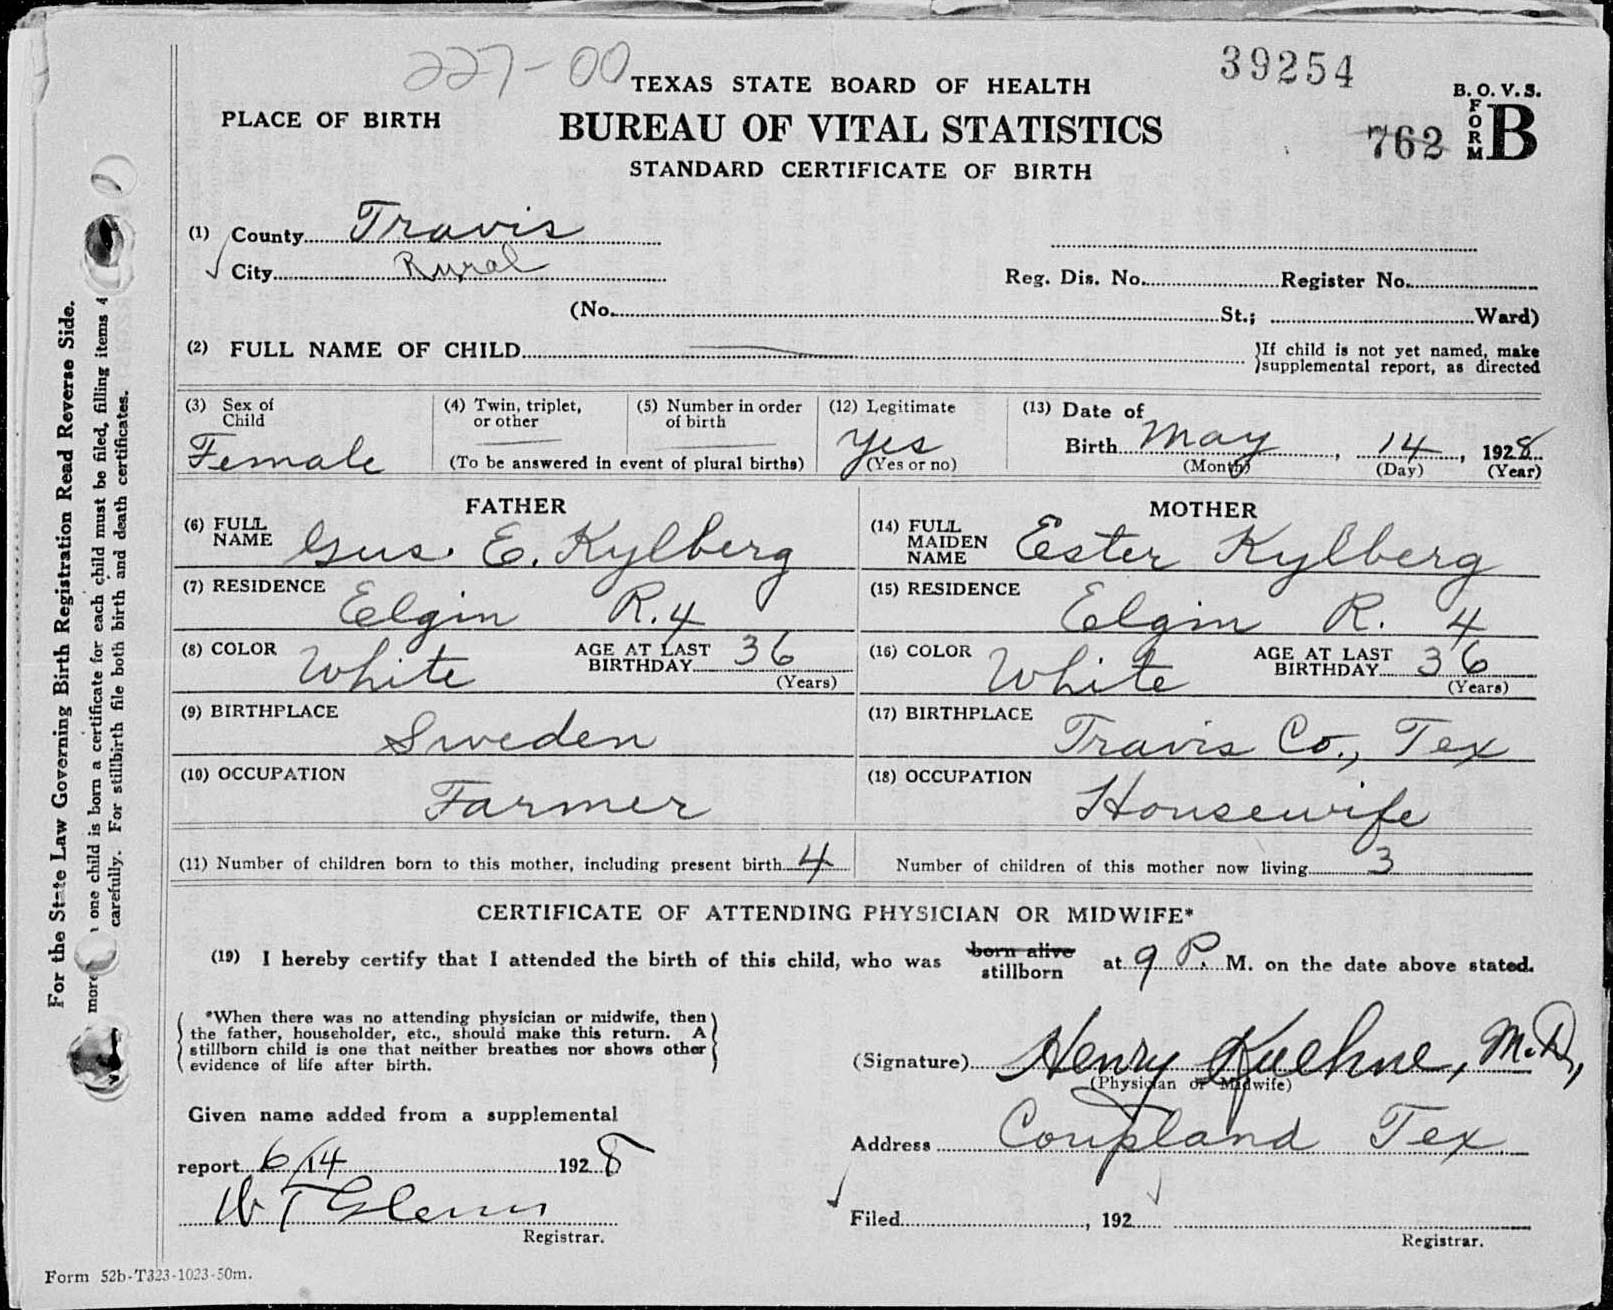 227-00
39254
TEXAS STATE BOARD OF HEALTH
B. O. V. S.
PLACE OF BIRTH
BUREAU OF VITAL STATISTICS
762
FORM B
STANDARD CERTIFICATE OF BIRTH
(1) County Travis
City Rural
Reg. Dis. No. Register No.
(No. St.; Ward)
(2) FULL NAME OF CHILD
}If child is not yet named, make
}supplemental report, as directed
(3) Sex of Child Female
(4) Twin, triplet, or other
(5) Number in order of birth
(To be answered in event of plural births)
(12) Legitimate yes
(Yes or no)
(13) Date of
Birth May, 14, 1928
(Month) (Day) (Year)
FATHER
(6) FULL NAME Gus. E. Kylberg
(7) RESIDENCE Elgin R. 4
(8) COLOR White AGE AT LAST BIRTHDAY 36
(Years)
(9) BIRTHPLACE Sweden
(10) OCCUPATION Farmer
MOTHER
(14) FULL MAIDEN NAME Ester Kylberg
(15) RESIDENCE Elgin R. 4
(16) COLOR White AGE AT LAST BIRTHDAY 36
(Years)
(17) BIRTHPLACE Travis Co., Tex
(18) OCCUPATION Housewife
(11) Number of children born to this mother, including present birth 4 Number of children of this mother now living 3
CERTIFICATE OF ATTENDING PHYSICIAN OR MIDWIFE*
(19) I hereby certify that I attended the birth of this child, who was born alive stillborn at 9 P. M. on the date above stated.
*When there was no attending physician or midwife, then
the father, householder, etc., should make this return. A
stillborn child is one that neither breathes nor shows other
evidence of life after birth.
(Signature) Henry Kuehne, M.D.,
(Physician or Midwife)
Given name added from a supplemental
Address Coupland Tex.
report 6/14 1928
W T Glenn
Registrar.
Filed , 192
Registrar.
Form 52b-T323-1023-50m.
For the State Law Governing Birth Registration Read Reverse Side.
more one child is born a certificate for each child must be filed, filling items 4
carefully. For stillbirth file both birth and death certificates.